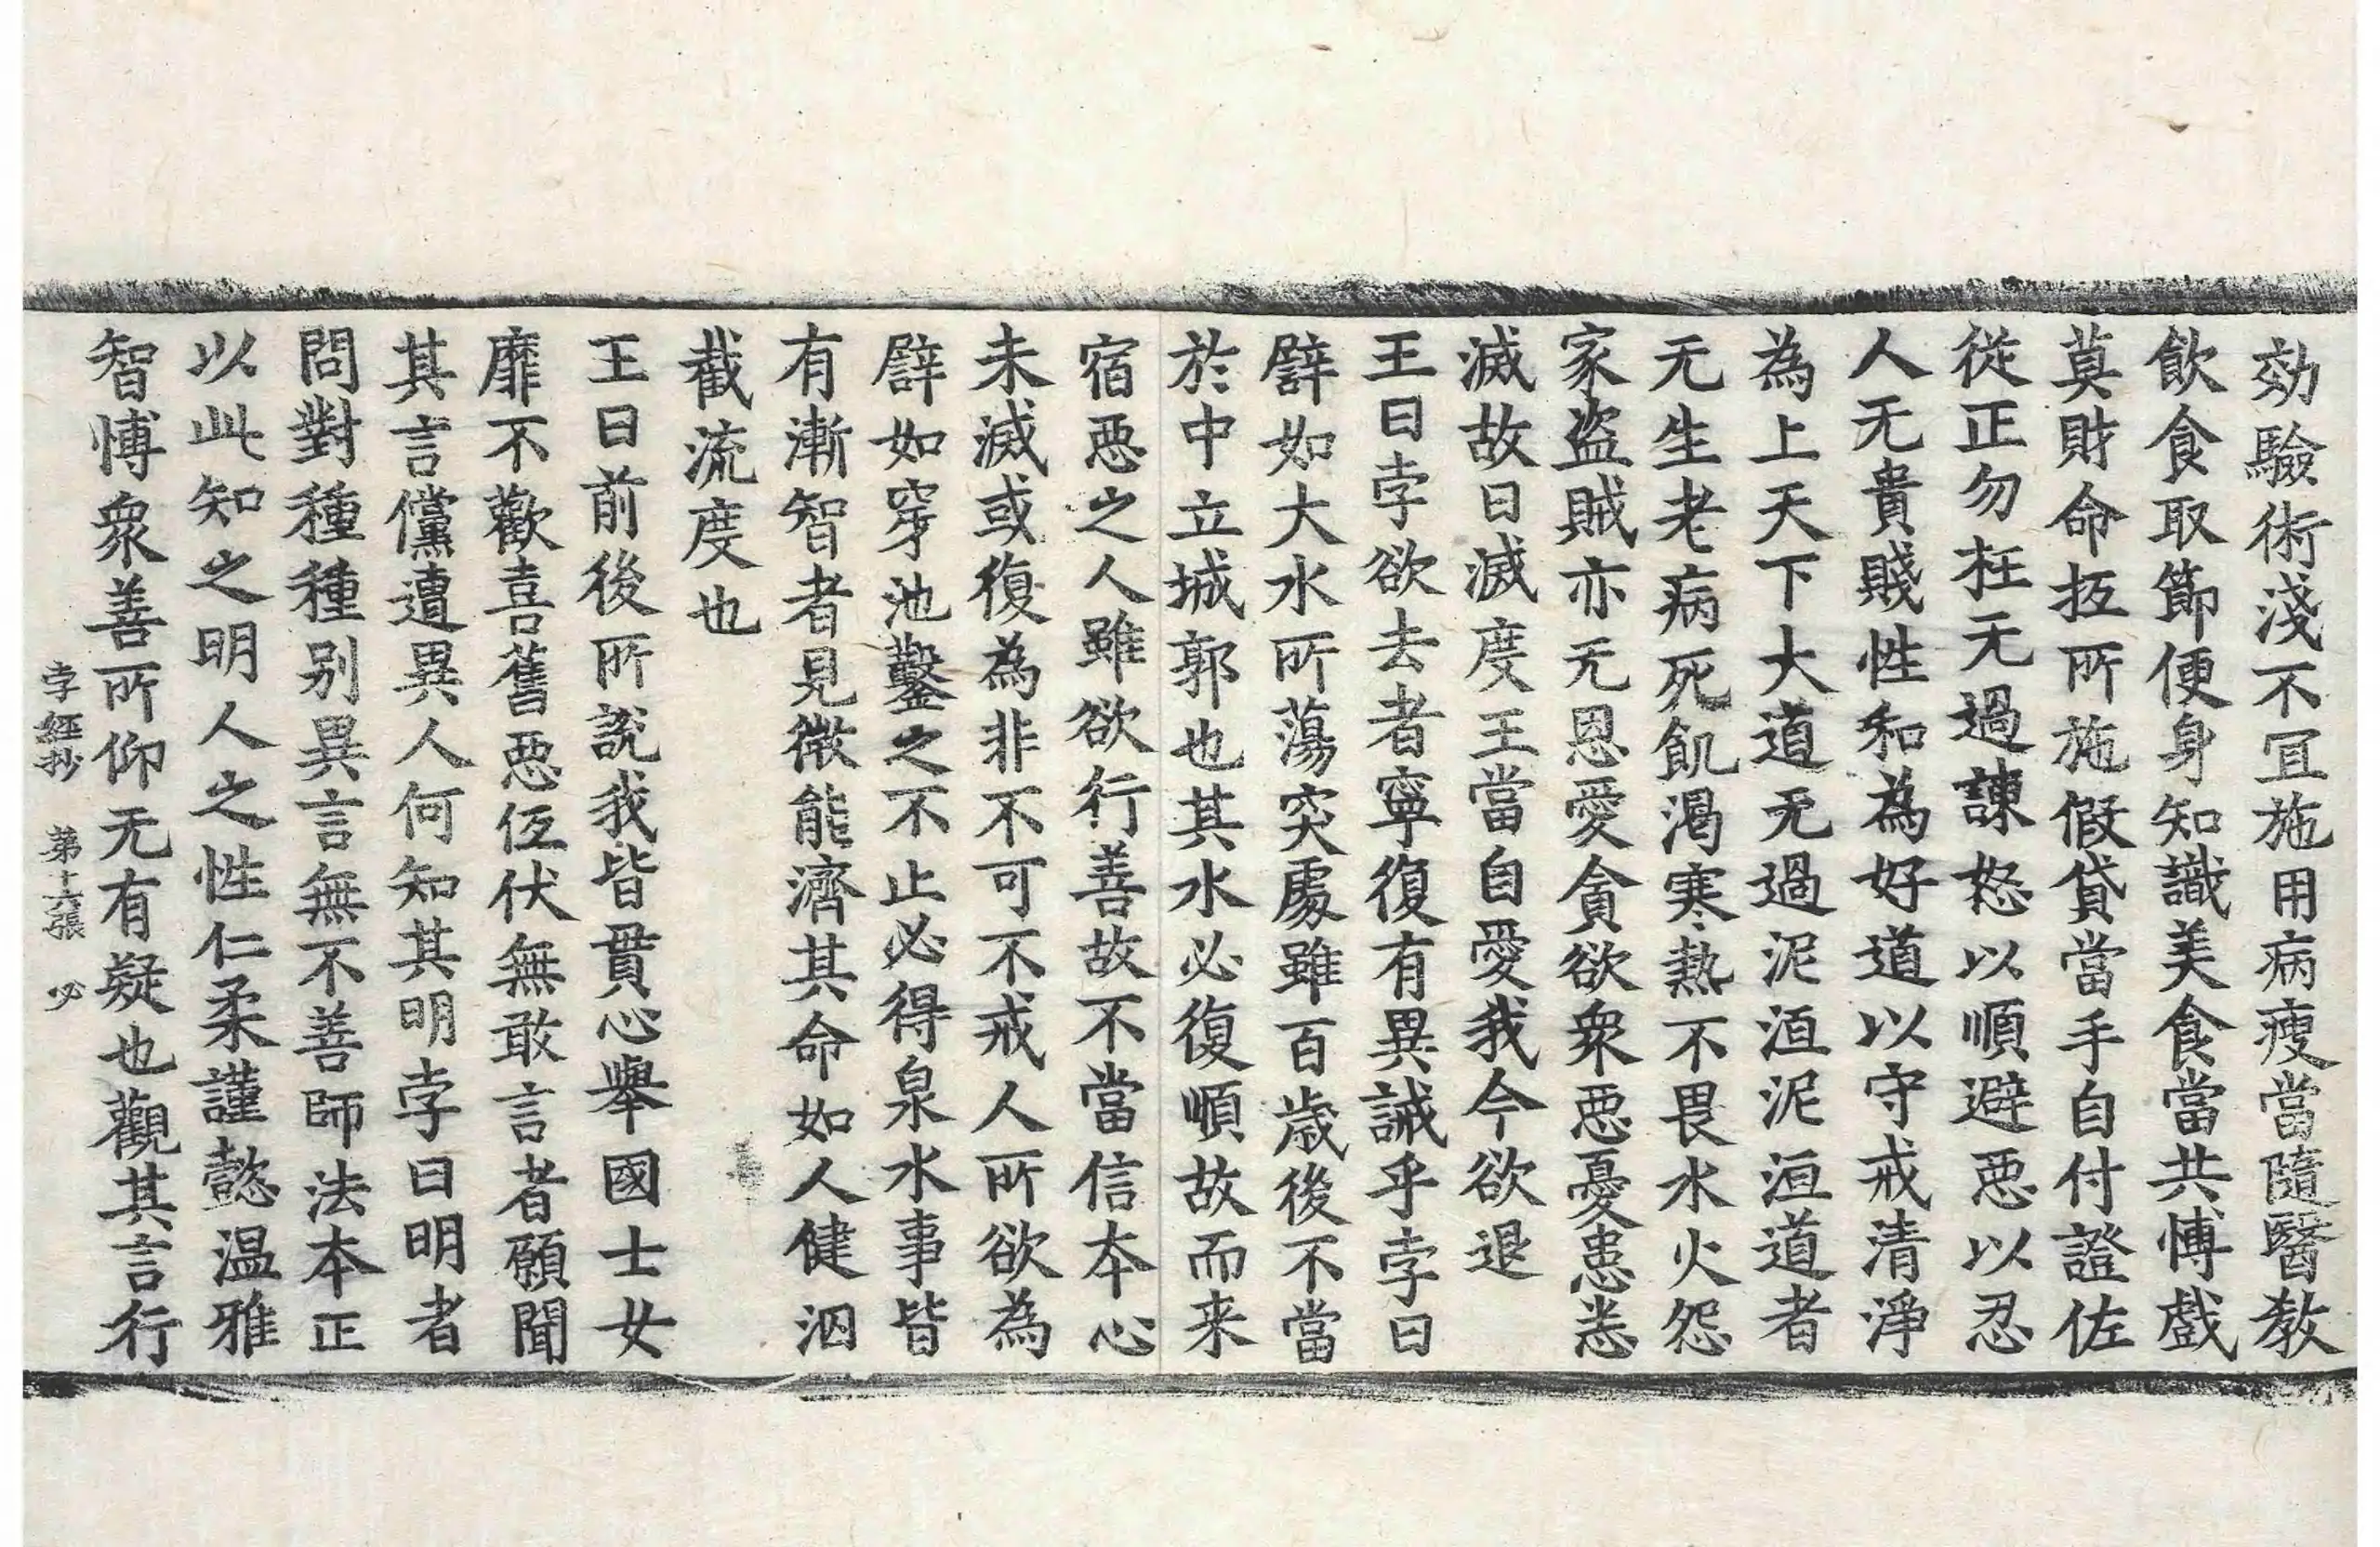 効驗術淺不冝施用病瘦當隨醫教
飲食取節便身知識美食當共愽戲
莫財命抂所施假貸當手自付證佐
從正勿枉无過諫怒以順避惡以忍
人无貴賤性和為好道以守戒清淨
為上天下大道无過泥洹泥洹道者
无生老病死飢渴寒熱不畏水火怨
家盜賊亦无恩愛貪欲衆惡憂患悉
滅故曰滅度王當自愛我今欲退
王曰孛欲去者寧復有異誡乎孛曰
譬如大水所蕩突處雖百歲後不當
於中立城郭也其水必復順故而来
宿惡之人雖欲行善故不當信本心
未滅或復為非不可不戒人所欲為
譬如穿池鑿之不止必得泉水事皆
有漸智者見微能濟其命如人健泅
截流度也
王曰前後所說我皆貫心舉國士女
靡不歡喜舊惡伭伏無敢言者願聞
其言儻遭異人何知其明孛曰明者
問對種種别異言無不善師法本正
以此知之明人之性仁柔謹懿温雅
智愽衆善所仰无有疑也觀其言行
孛經抄　第十六張　必